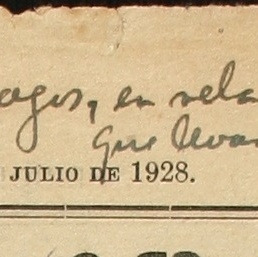 agos, en rela
que levan
JULIO DE 1928.